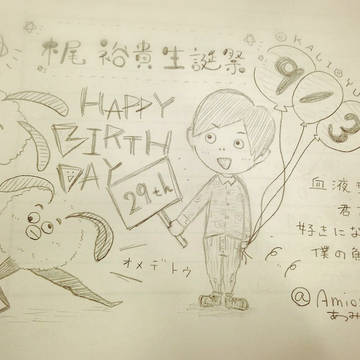 梶裕貴生誕祭
©KALI@YU
9-3
HAPPY
BIRTH
DAY
29th
オメデトウ
血液
君
好きにな
僕の
@Amio
あみ